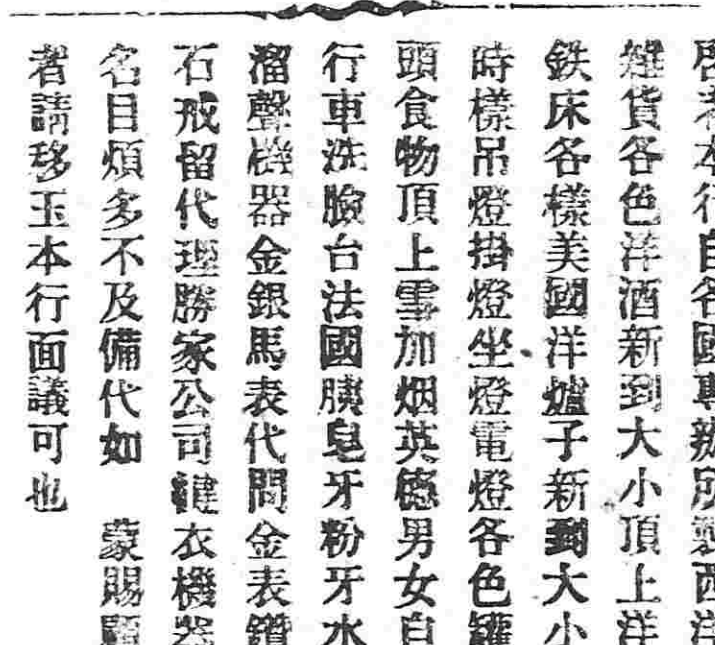 啓者本行自各國專辦所製西洋
雜貨各色洋酒新到大小頂上洋
鉄床各樣美國洋爐子新到大小
時樣吊燈掛燈坐燈電燈各色罐
頭食物頂上雪加烟英德男女自
行車洗臉台法國胰皂牙粉牙水
溜聲機器金銀馬表代問金表鑽
石戒留代理勝家公司縫衣機器
名目煩多不及備代如 蒙賜顧
者請移玉本行面議可也